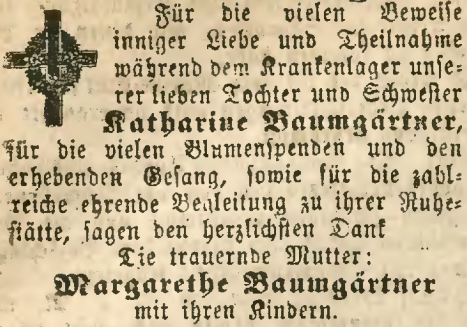 Für die vielen Beweise
inniger Liebe und Theilnahme
während dem Krankenlager unse-
rer lieben Tochter und Schwester
Katharine Baumgärtner,
für die vielen Blumenspenden und den
erhebenden Gesang, sowie für die zahl-
reiche ehrende Begleitung zu ihrer Ruhe-
stätte, sagen den herzlichsten Dank
Die trauernde Mutter:
Margarethe Baumgärtner
mit ihren Kindern.